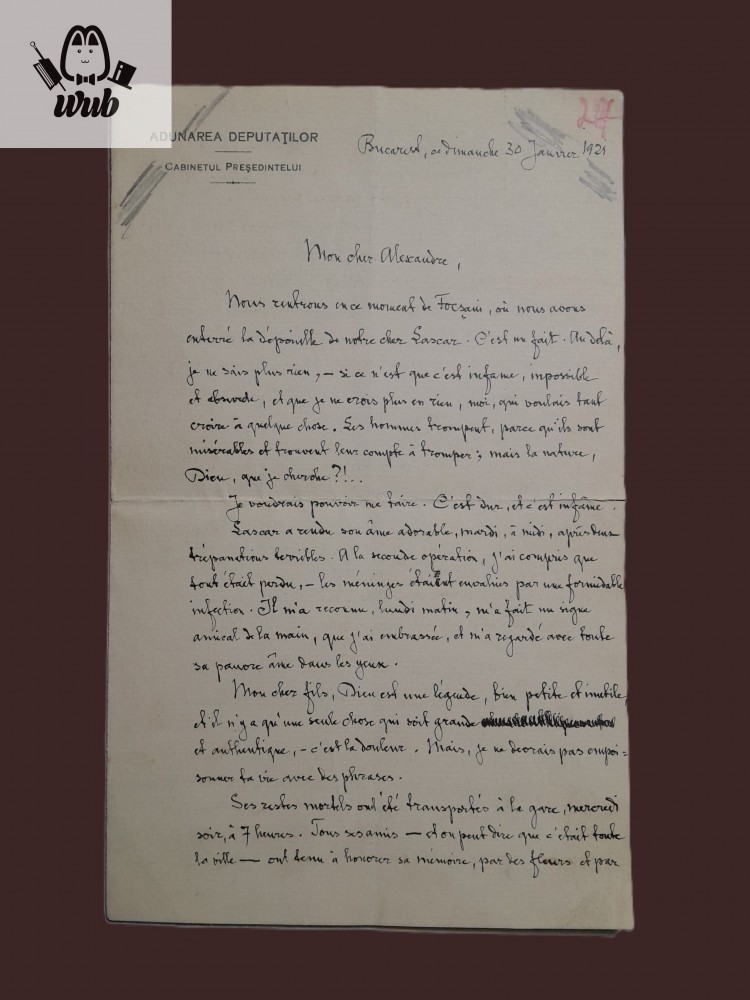 wub
ADUNAREA DEPUTAŢILOR
CABINETUL PREŞEDINTELUI
27
Bucarest, ce dimanche 30 Janvier 1921
Mon cher Alexandre,
Nous rentrons en ce moment de Focşani, où nous avons
enterré la dépouille de notre cher Lascar. C'est un fait. Au delà,
je ne sais plus rien, – si ce n'est que c'est infame, impossible
et absurde, et que je ne crois plus en rien, moi, qui voulais tant
croire à quelque chose. Les hommes trompent, parce qu'ils sont
misérables et trouvent leur compte à tromper; mais la nature,
Dieu, que je cherche?!..
Je voudrais pouvoir me taire. C'est dur, et c'est infâme.
Lascar a rendu son âme adorable, mardi, à midi, après deux
trépanations terribles. A la seconde opération, j'ai compris que
tout était perdu, – les méninges étaient envahies par une formidable
infection. Il m'a reconnu, lundi matin, m'a fait un signe
amical de la main, que j'ai embrassée, et m'a regardé avec toute
sa pauvre âme dans les yeux.
Mon cher fils, Dieu est une légende, bien petite et inutile,
et il n'y a qu'une seule chose qui soit grande
et authentique, – c'est la douleur. Mais, je ne devrais pas empoi=
sonner ta vie avec des phrases.
Ses restes mortels ont été transportés à la gare, mercredi
soir, à 7 heures. Tous ses amis — et on peut dire que c'était toute
la ville — ont tenu à honorer sa mémoire, par des fleurs et par